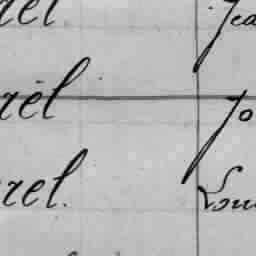 rel Jea
rël Jo
rel. Lou